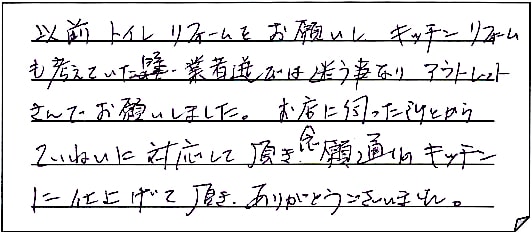 以前トイレリフォームをお願いし キッチンリフォーム
も考えていた為、業者選びでは迷う事なり アウトレット
さんでお願いしました。お店に伺った時から
ていねいに対応して頂き、念願通りのキッチン
に仕上げて頂き、ありがとうございました。